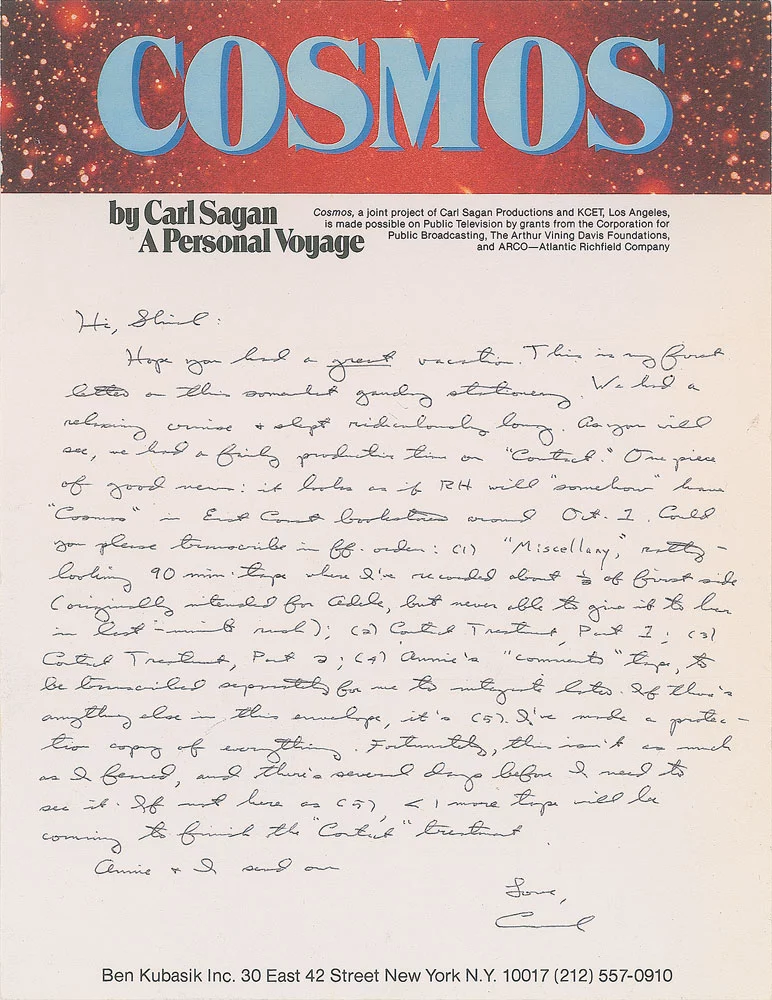 COSMOS
by Carl Sagan
A Personal Voyage
Cosmos, a joint project of Carl Sagan Productions and KCET, Los Angeles,
is made possible on Public Television by grants from the Corporation for
Public Broadcasting, The Arthur Vining Davis Foundations,
and ARCO—Atlantic Richfield Company
Hi, Shirl:
Hope you had a great vacation. This is my first
letter on this somewhat gaudy stationery. We had a
relaxing cruise & slept ridiculously long. As you will
see, we had a fairly productive time on "Contact." One piece
of good news: it looks as if RH will "somehow" have
"Cosmos" in East Coast bookstores around Oct. 1. Could
you please transcribe in ff. order: (1) "Miscellany," ratty-
looking 90 min. tape where I've recorded about ⅓ of first side
(originally intended for Adele, but never able to give it to her
in last-minute rush); (2) Contact Treatment, Part 1; (3)
Contact Treatment, Part 2; (4) Annie's "comments" tape, to
be transcribed separately for me to integrate later. If there's
anything else in this envelope, it's (5). I've made a protec-
tion copy of everything. Fortunately, this isn't as much
as I feared, and there's several days before I need to
see it. If not here as (5), < 1 more tape will be
coming to finish the "Contact" treatment.
Annie & I send our
Love,
Carl
Ben Kubasik Inc. 30 East 42 Street New York N.Y. 10017 (212) 557-0910